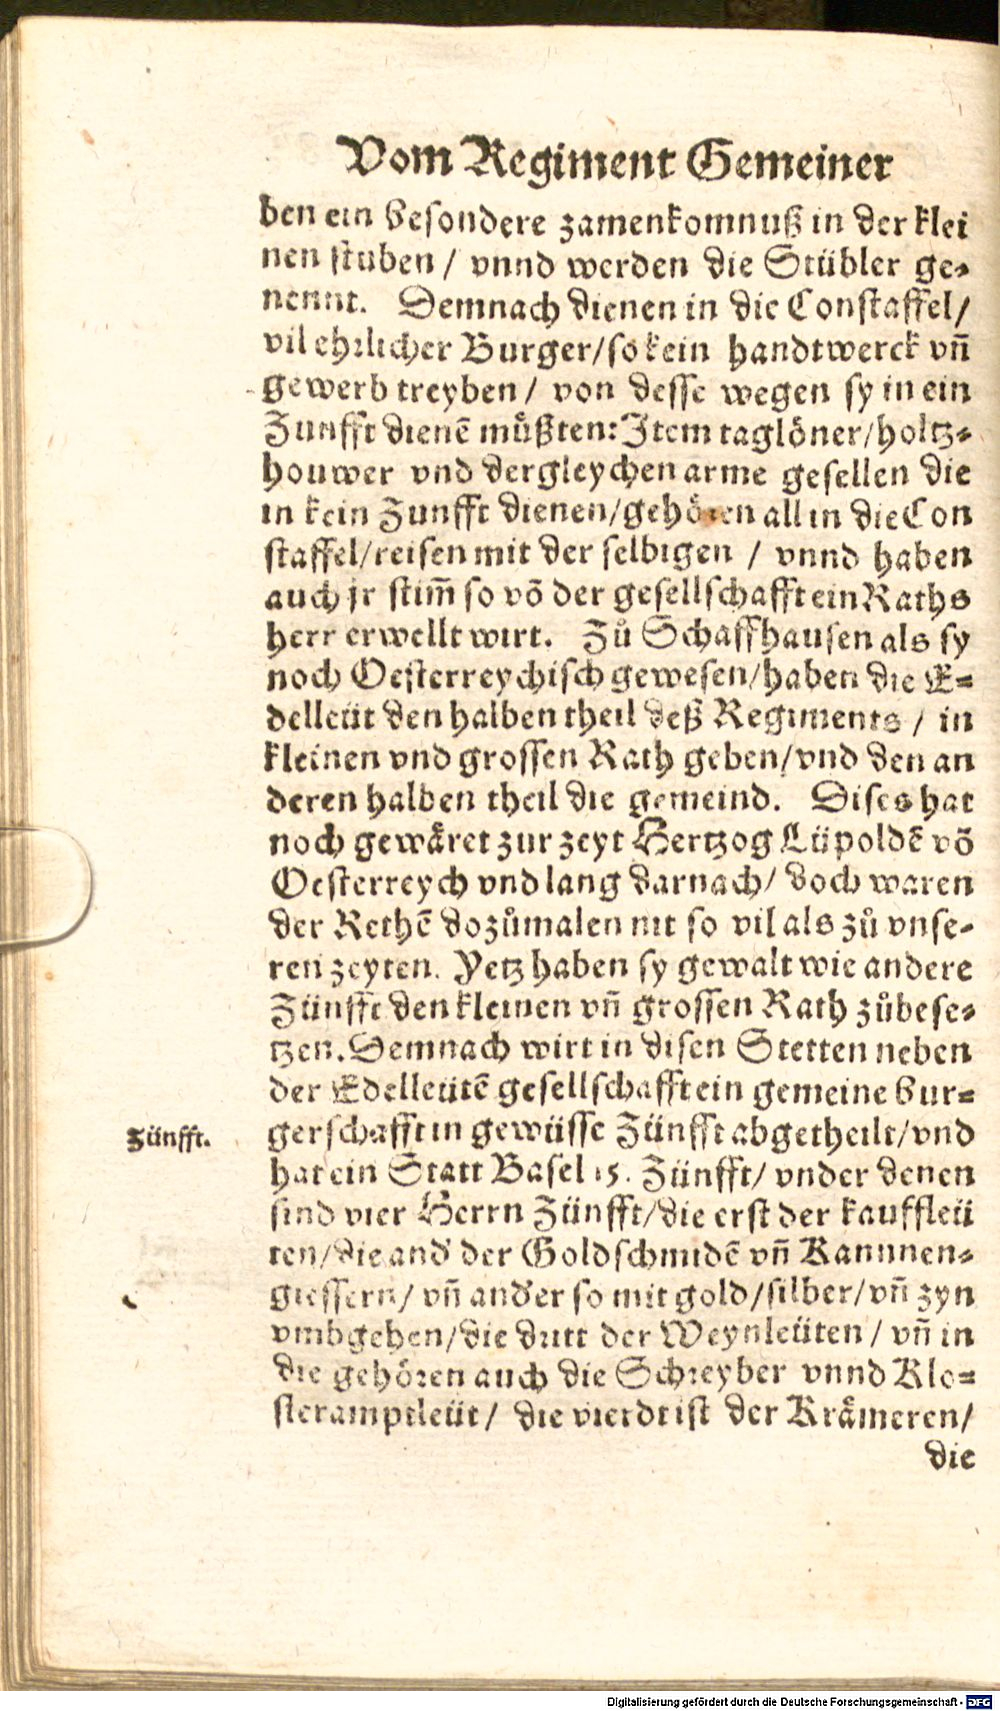 Vom Regiment Gemeiner
ben ein besondere zamenkomnuß in der klei
nen stuben / vnnd werden die Stübler ge-
nennt. Demnach dienen in die Constaffel/
vil ehrlicher Burger/so kein handtwerck vñ
gewerb treyben / von desse wegen sy in ein
Zunfft dienẽ müßten: Item taglöner/holtz-
houwer vnd dergleychen arme gesellen die
in kein Zunfft dienen/gehören all in die Con
staffel/reisen mit der selbigen / vnnd haben
auch jr stim̃ so võ der gesellschafft ein Raths
herr erwellt wirt. Zů Schaffhausen als sy
noch Oesterreychisch gewesen/haben die E-
delleüt den halben theil deß Regiments / in
kleinen vnd grossen Rath geben/vnd den an
deren halben theil die gemeind. Dises hat
noch gewäret zur zeyt Hertzog Lüpoldẽ võ
Oesterreych vnd lang darnach/ doch waren
der Rethẽ dozůmalen nit so vil als zů vnse-
ren zeyten. Yetz haben sy gewalt wie andere
Zünfft den kleinen vñ grossen Rath zůbese-
tzen. Demnach wirt in disen Stetten neben
der Edelleütẽ gesellschafft ein gemeine bur-
Zünfft.
gerschafft in gewüsse Zünfft abgetheilt/vnd
hat ein Statt Basel 15. Zünfft/ vnder denen
sind vier Herrn Zünfft/die erst der kauffleü
ten/die and' der Goldschmidẽ vñ Kannnen-
giessern/ vñ and'er so mit gold/silber/vñ zyn
vmbgehen/die dritt der Weynleüten / vñ in
die gehören auch die Schreyber vnnd Klo-
steramptleüt/ die vierdt ist der Krämeren/
die
Digitalisierung gefördert durch die Deutsche Forschungsgemeinschaft - DFG